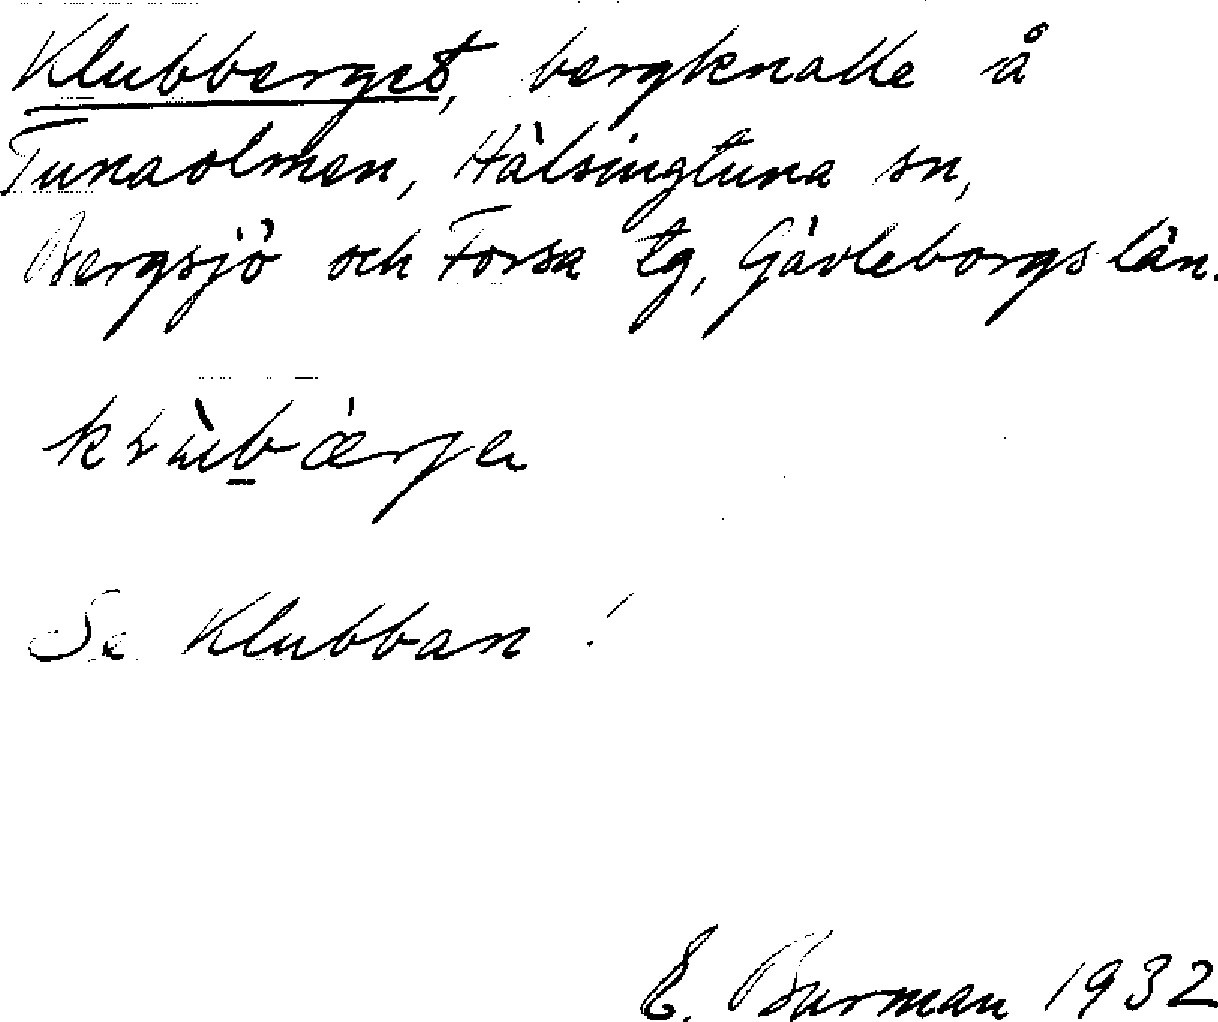 Klubberget, bergknalle å
Tunaolmen, Hälsingtuna sn,
Bergsjö och Forsa tg, Gävleborgs län.
Se Klubban!
E. Burman 1932